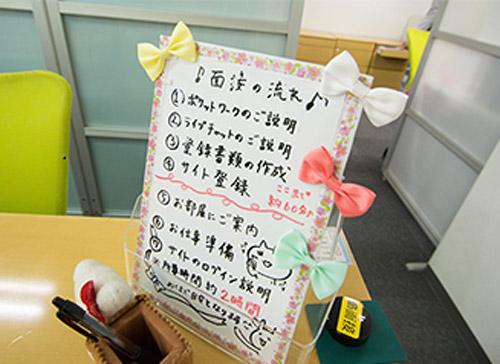 ♪面接の流れ♪
①ポケットワークのご説明
②ライブチャットのご説明
③登録書類の作成
④サイト登録
ここまで
約60分♪
⑤お部屋にご案内
⑥お仕事準備
⑦サイトのログイン説明
※所要時間 約2時間